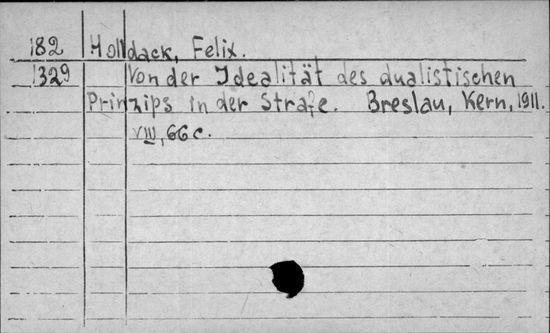 182 Holldack, Felix.
1329 Von der Idealität des dualistischen
Prinzips in der Strafe. Breslau, Kern, 1911.
VIII, 66 c.